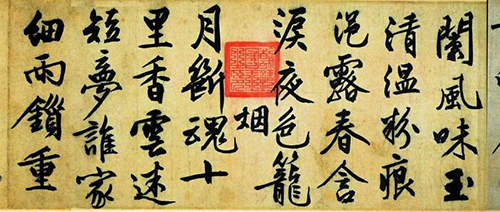 闌風味玉
清溫粉痕
浥露春含
淚夜色籠
烟
月斷魂十
里香雲迷
短夢誰家
細雨鎖重